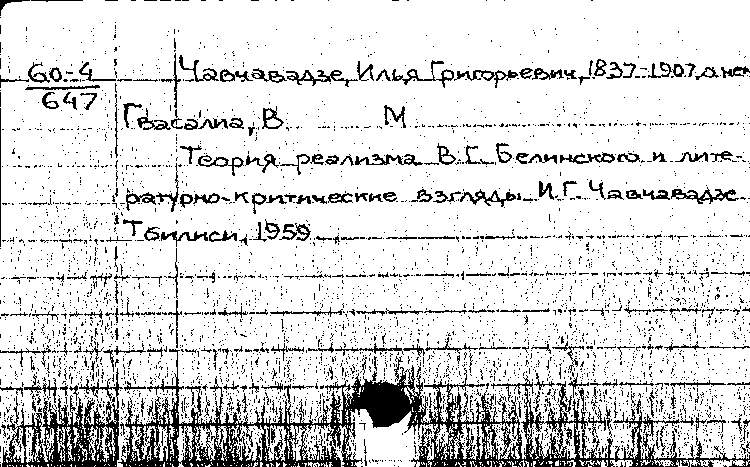 60-4
647
Чавчавадзе, Илья Григорьевич, 1837-1907, о нем
Гвасалиа, В М
Теория реализма В.Г. Белинского и лите-
ратурно-критические взгляды И.Г. Чавчавадзе
Тбилиси, 1959